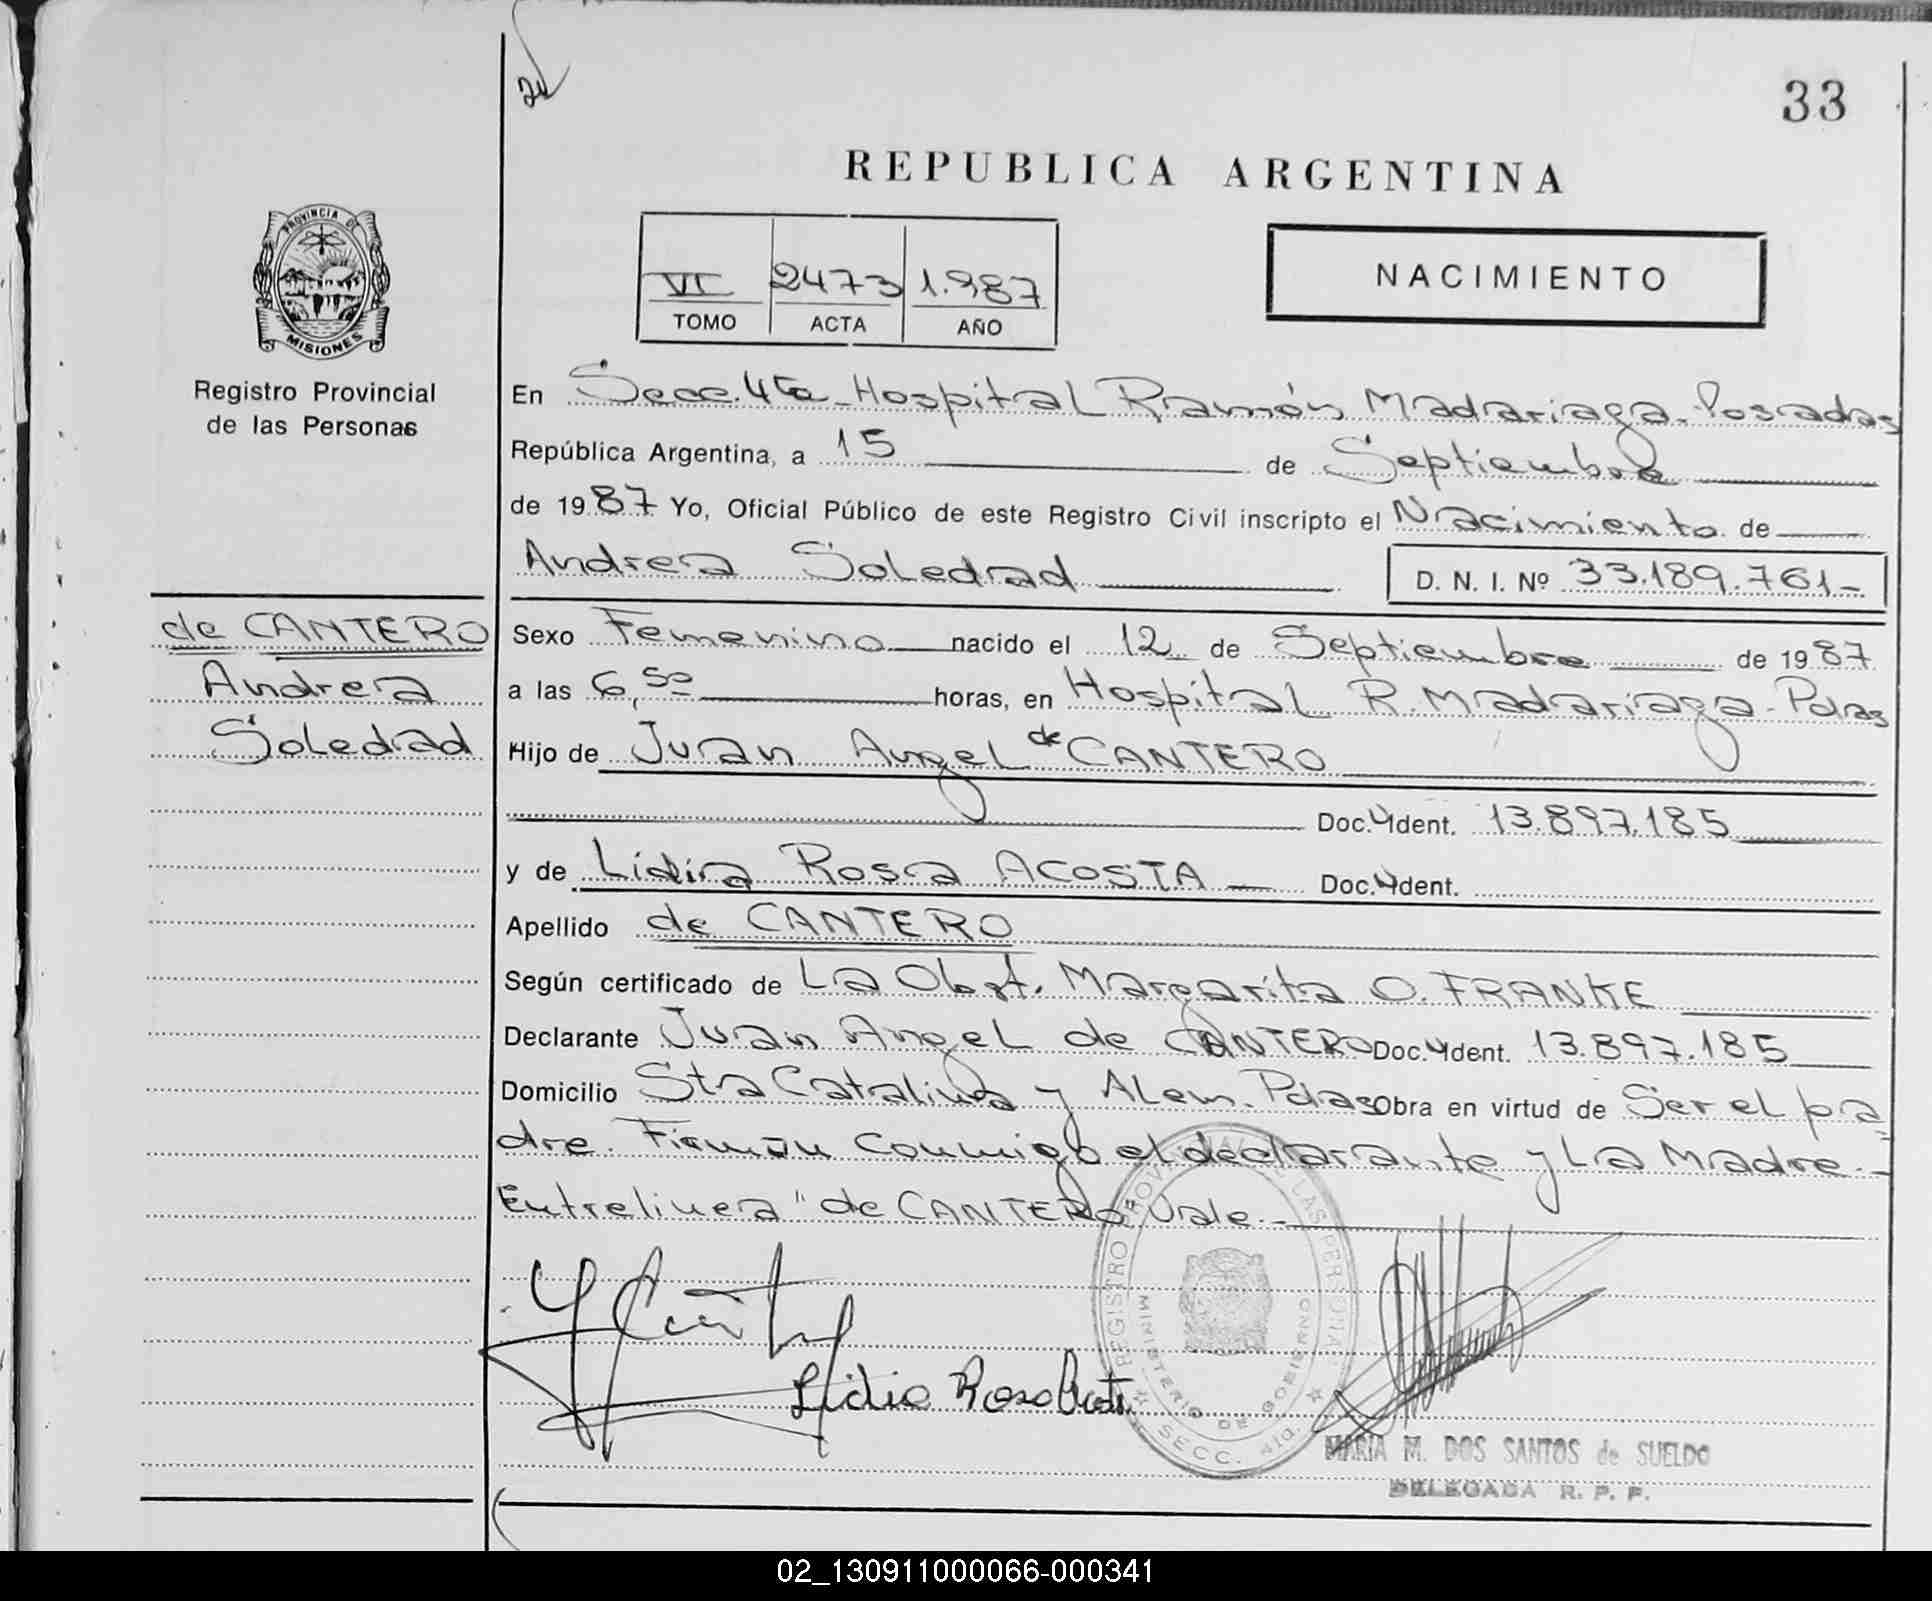 33
REPUBLICA ARGENTINA
PROVINCIA DE
MISIONES
Registro Provincial
de las Personas
VI 2473 1.987
TOMO ACTA AÑO
NACIMIENTO
En Secc. 4ta - Hospital Ramón Madariaga - Posadas
República Argentina, a 15 de Septiembre
de 1987 Yo, Oficial Público de este Registro Civil inscripto el Nacimiento de
Andrea Soledad D. N. I. Nº 33.189.761-
de CANTERO
Andrea
Soledad
Sexo Femenino nacido el 12 de Septiembre de 1987
a las 6,50 horas, en Hospital R. Madariaga - Pdas
Hijo de Juan Angel de CANTERO
Doc. Ident. 13.897.185
y de Lidia Rosa ACOSTA Doc. Ident.
Apellido de CANTERO
Según certificado de La Obst. Margarita O. FRANKE
Declarante Juan Angel de CANTERO Doc. Ident. 13.897.185
Domicilio Sta Catalina y Alem - Pdas Obra en virtud de Ser el pa
dre. Firman conmigo el declarante y La Madre.-
Entrelinea "de CANTERO" Vale.-
Lidia Rosa Acosta
REGISTRO PROVINCIAL DE LAS PERSONAS
MINISTERIO DE GOBIERNO
SECC. 4ta.
MARIA M. DOS SANTOS de SUELDO
DELEGADA R. P. P.
02_130911000066-000341